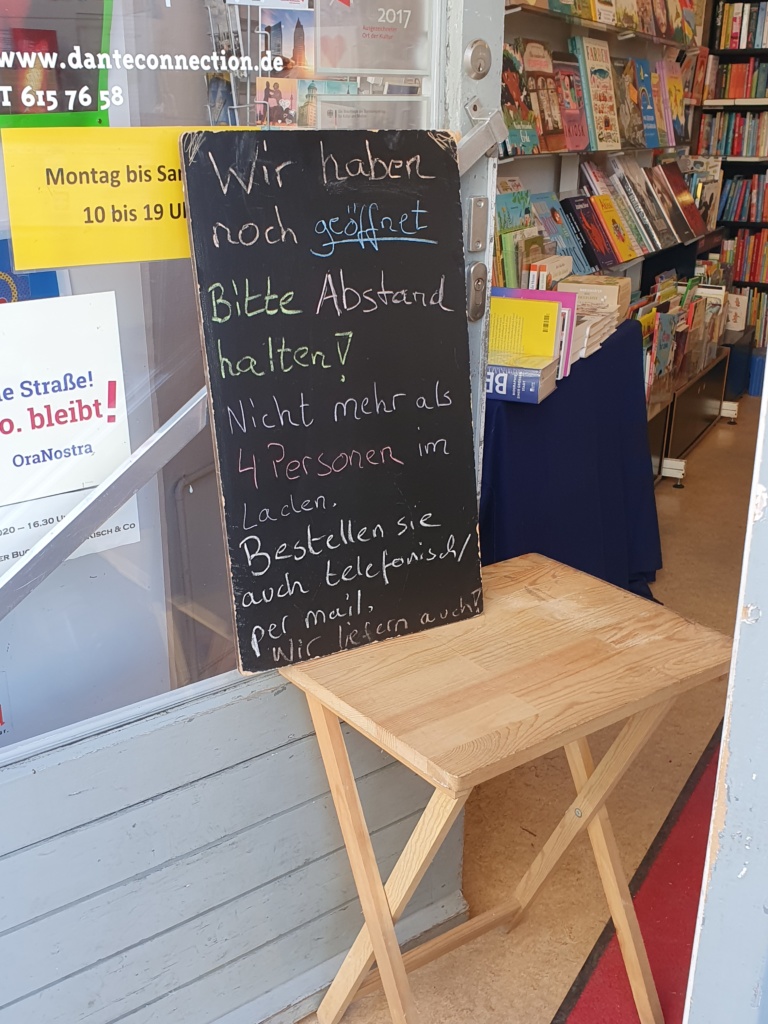 2017
www.danteconnection.de
T 615 76 58
Montag bis
10 bis 19
e Straße!
o. bleibt!
OraNostra
020 – 16.30
Wir haben
noch geöffnet
Bitte Abstand
halten!
Nicht mehr als
4 Personen im
Laden.
Bestellen sie
auch telefonisch/
per mail.
Wir liefern auch!